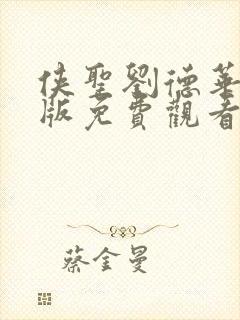 侠聖劉德華
版免費觀看
蔡金曼